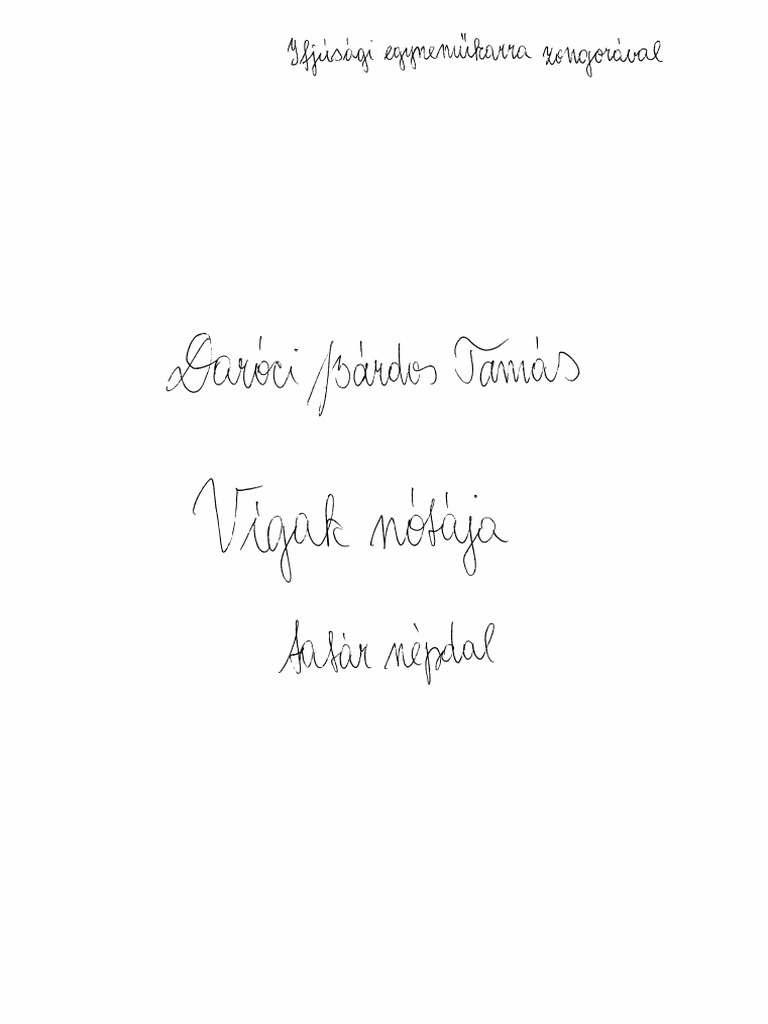 Ifjúsági egyneműkarra zongorával
Daróci Bárdos Tamás
Vígak nótája
tatár népdal